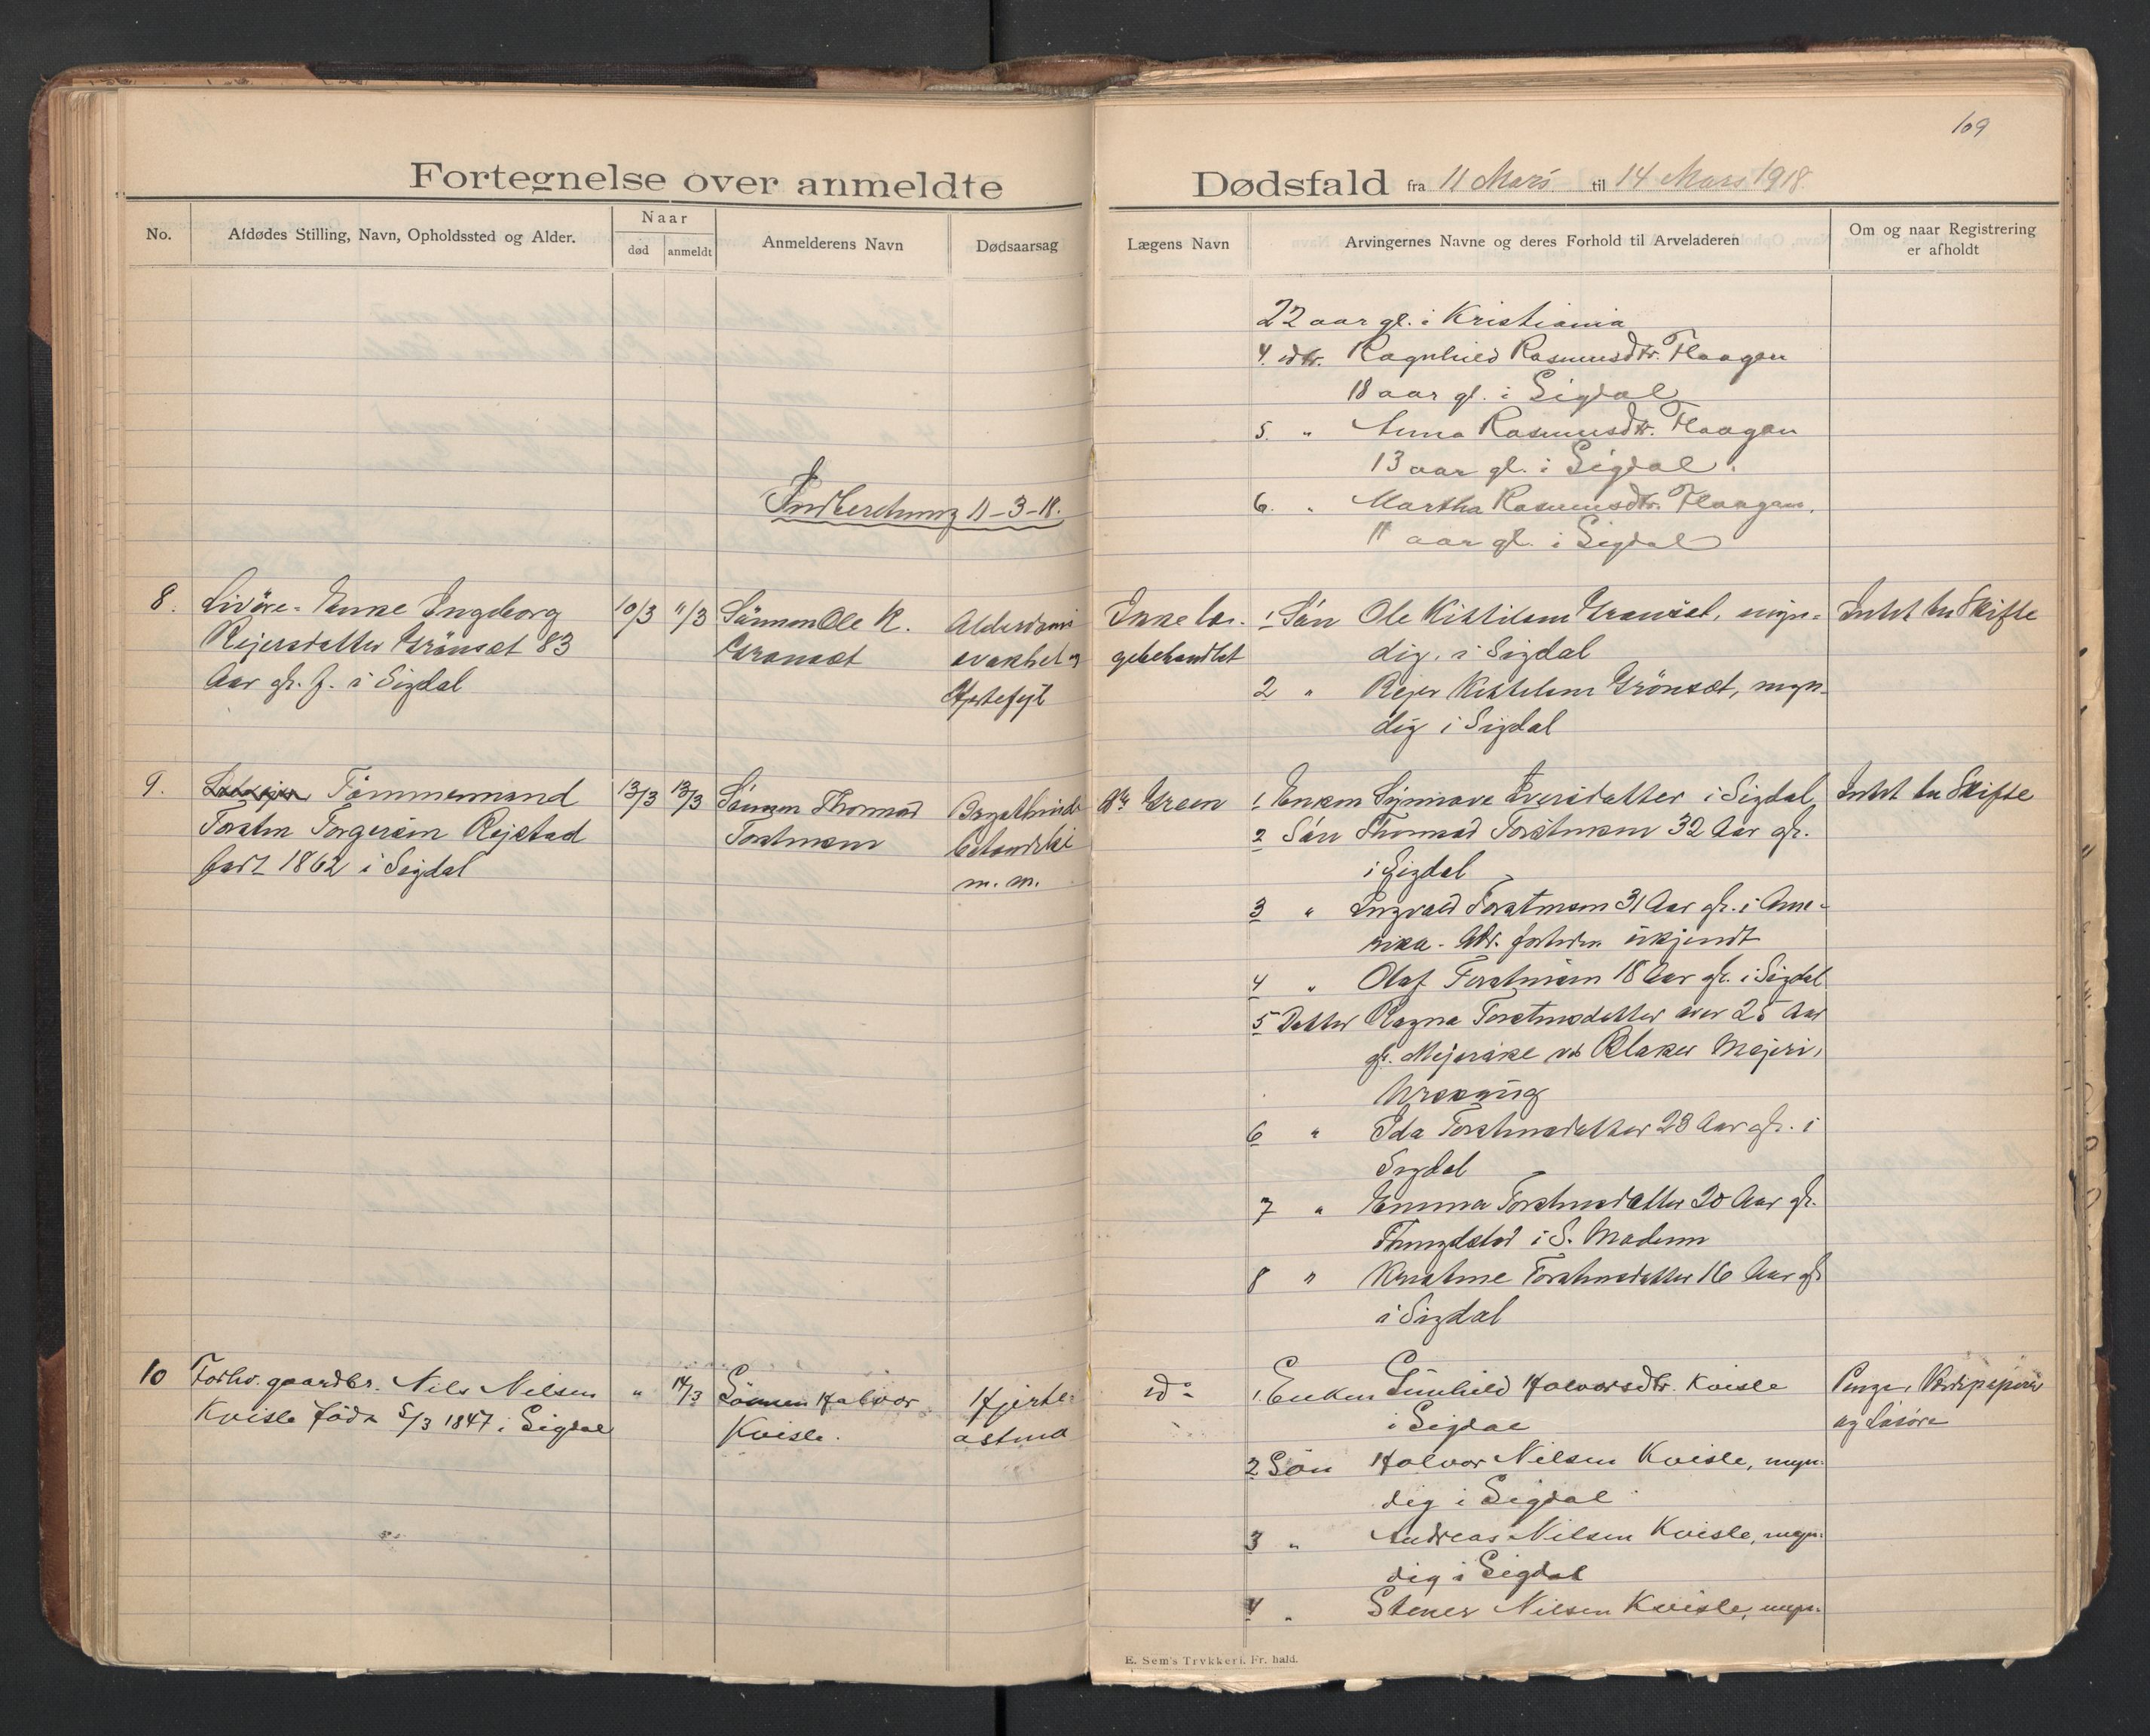 109
Fortegnelse over anmeldte Dødsfald fra 11 Mars til 14 Mars 1918.
No.
Afdødes Stilling, Navn, Opholdssted og Alder.
Naar
død
anmeldt
Anmelderens Navn
Dødsaarsag
Lægens Navn
Arvingernes Navne og deres Forhold til Arveladeren
Om og naar Registrering
er afholdt
22 aar gl. i Kristiania
4. dtr. Ragnhild Rasmusdtr. Flaagan
18 aar gl. i Sigdal
5. " Anna Rasmusdtr. Flaagan
13 aar gl. i Sigdal.
6. " Martha Rasmusdtr. Flaagan,
11 aar gl. i Sigdal
Indberetning 11-3-18.
8.
Livøre-Enke Ingeborg
Rejersdatter Grönset 83
Aar gl. f. i Sigdal
10/3
11/3
Sönnen Ole K.
Grønset
Alderdoms
svakhet og
Hjertefejl
Ikke læ-
gebehandlet
1 Sön Ole Kittilsen Grønset, myn-
dig, i Sigdal
2 " Rejer Kittilsen Grönset, myn-
dig i Sigdal
Intet bu Skifte
9.
Tømmermand
Torsten Torgersen Rejstad
født 1862 i Sigdal
13/3
13/3
Sönnen Thomas
Torstensen
m. m.
Dr Green
1 Enken Synnøve Iversdatter i Sigdal
2 Sön Thomas Torstensen 32 Aar gl.
i Sigdal
3 " Ingvald Torstensen 31 Aar gl. i Ame-
rika - Adr. forøvr. ukjendt
4 " Olaf Torstensen 18 Aar gl. i Sigdal
5 Datter Ragna Torstensdatter over 25 Aar
gl. Mejerske ved Blaker Mejeri,
Urskoug
6 " Ida Torstensdatter 23 Aar gl. i
Sigdal
7 " Emma Torstensdatter 20 Aar gl.
i S. Modum
8 " Kristine Torstensdatter 16 Aar gl
i Sigdal
Intet bu Skifte
10
Forhv. gaardbr. Nils Nilsen
Kvisle född 5/3 1847 i Sigdal
"
14/3
Sönnen Halvor
Kvisle.
Hjerte-
astma
do
1. Enken Gunhild Halvorsdtr. Kvisle
i Sigdal
2 Sön Halvor Nilsen Kvisle, myn-
dig i Sigdal
3 " Andreas Nilsen Kvisle, myn-
dig i Sigdal
4 " Stener Nilsen Kvisle, myn-
Penge, Værdipapirer
og Løsøre
E. Sem's Trykkeri. Fr.hald.